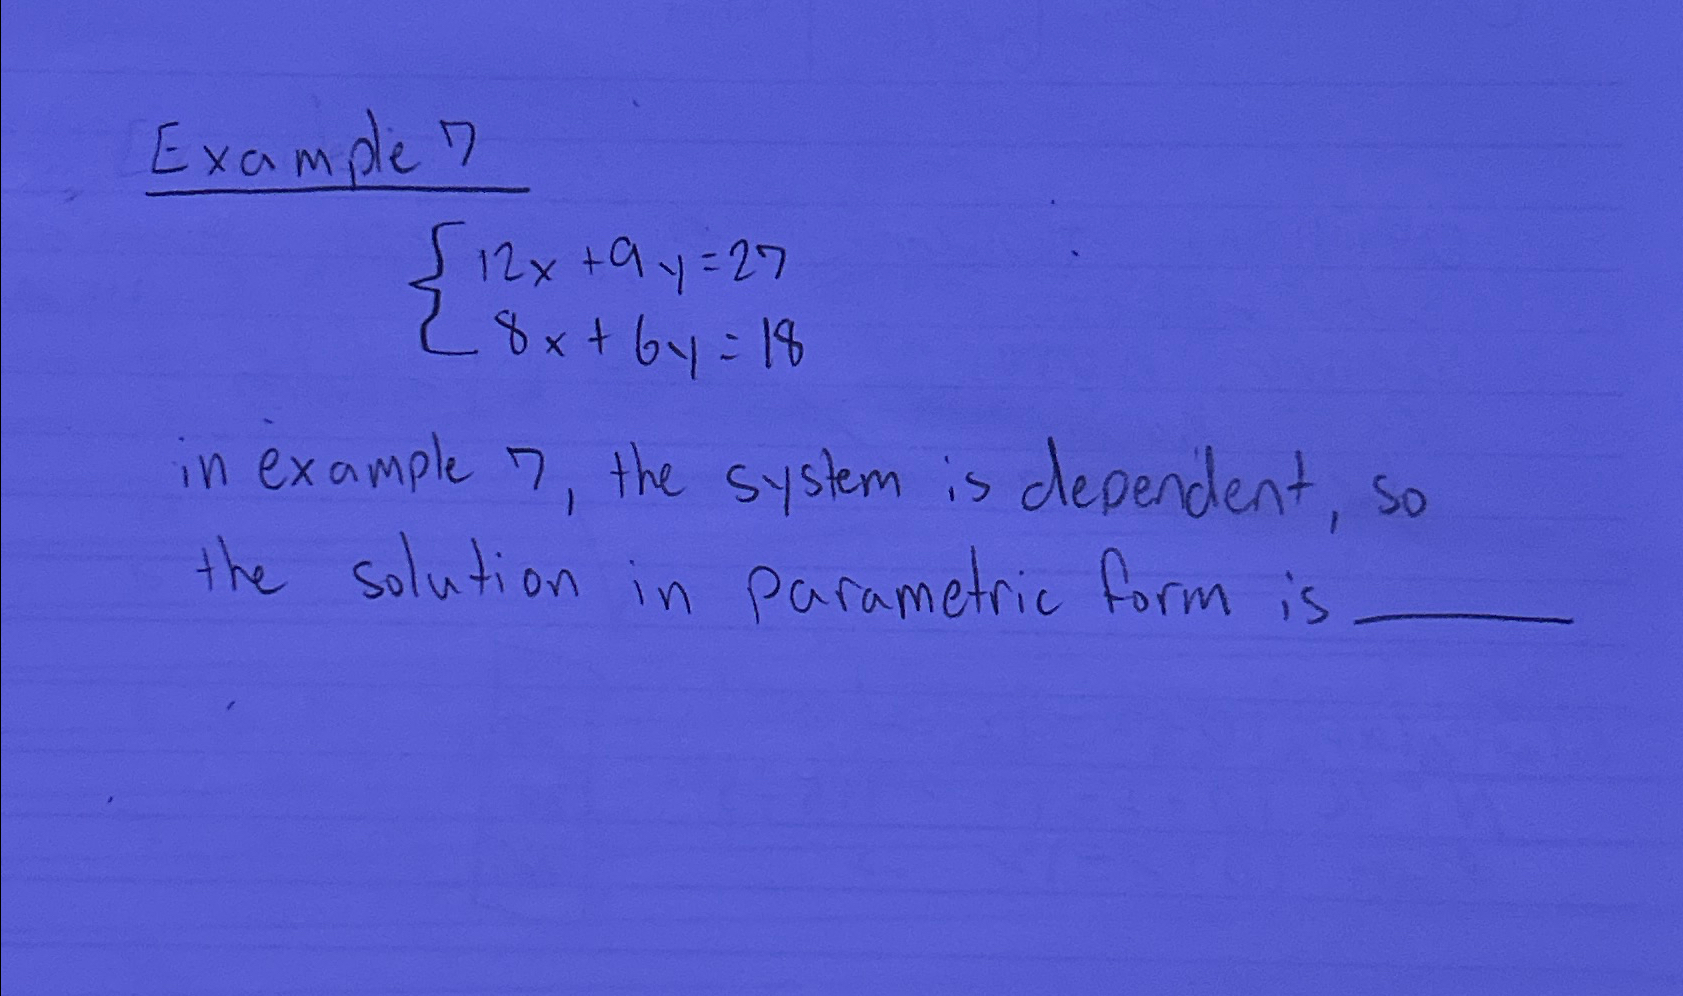 Example 7
12x + 9y = 27
8x + 6y = 18
in example 7, the system is dependent, so
the solution in parametric form is ______